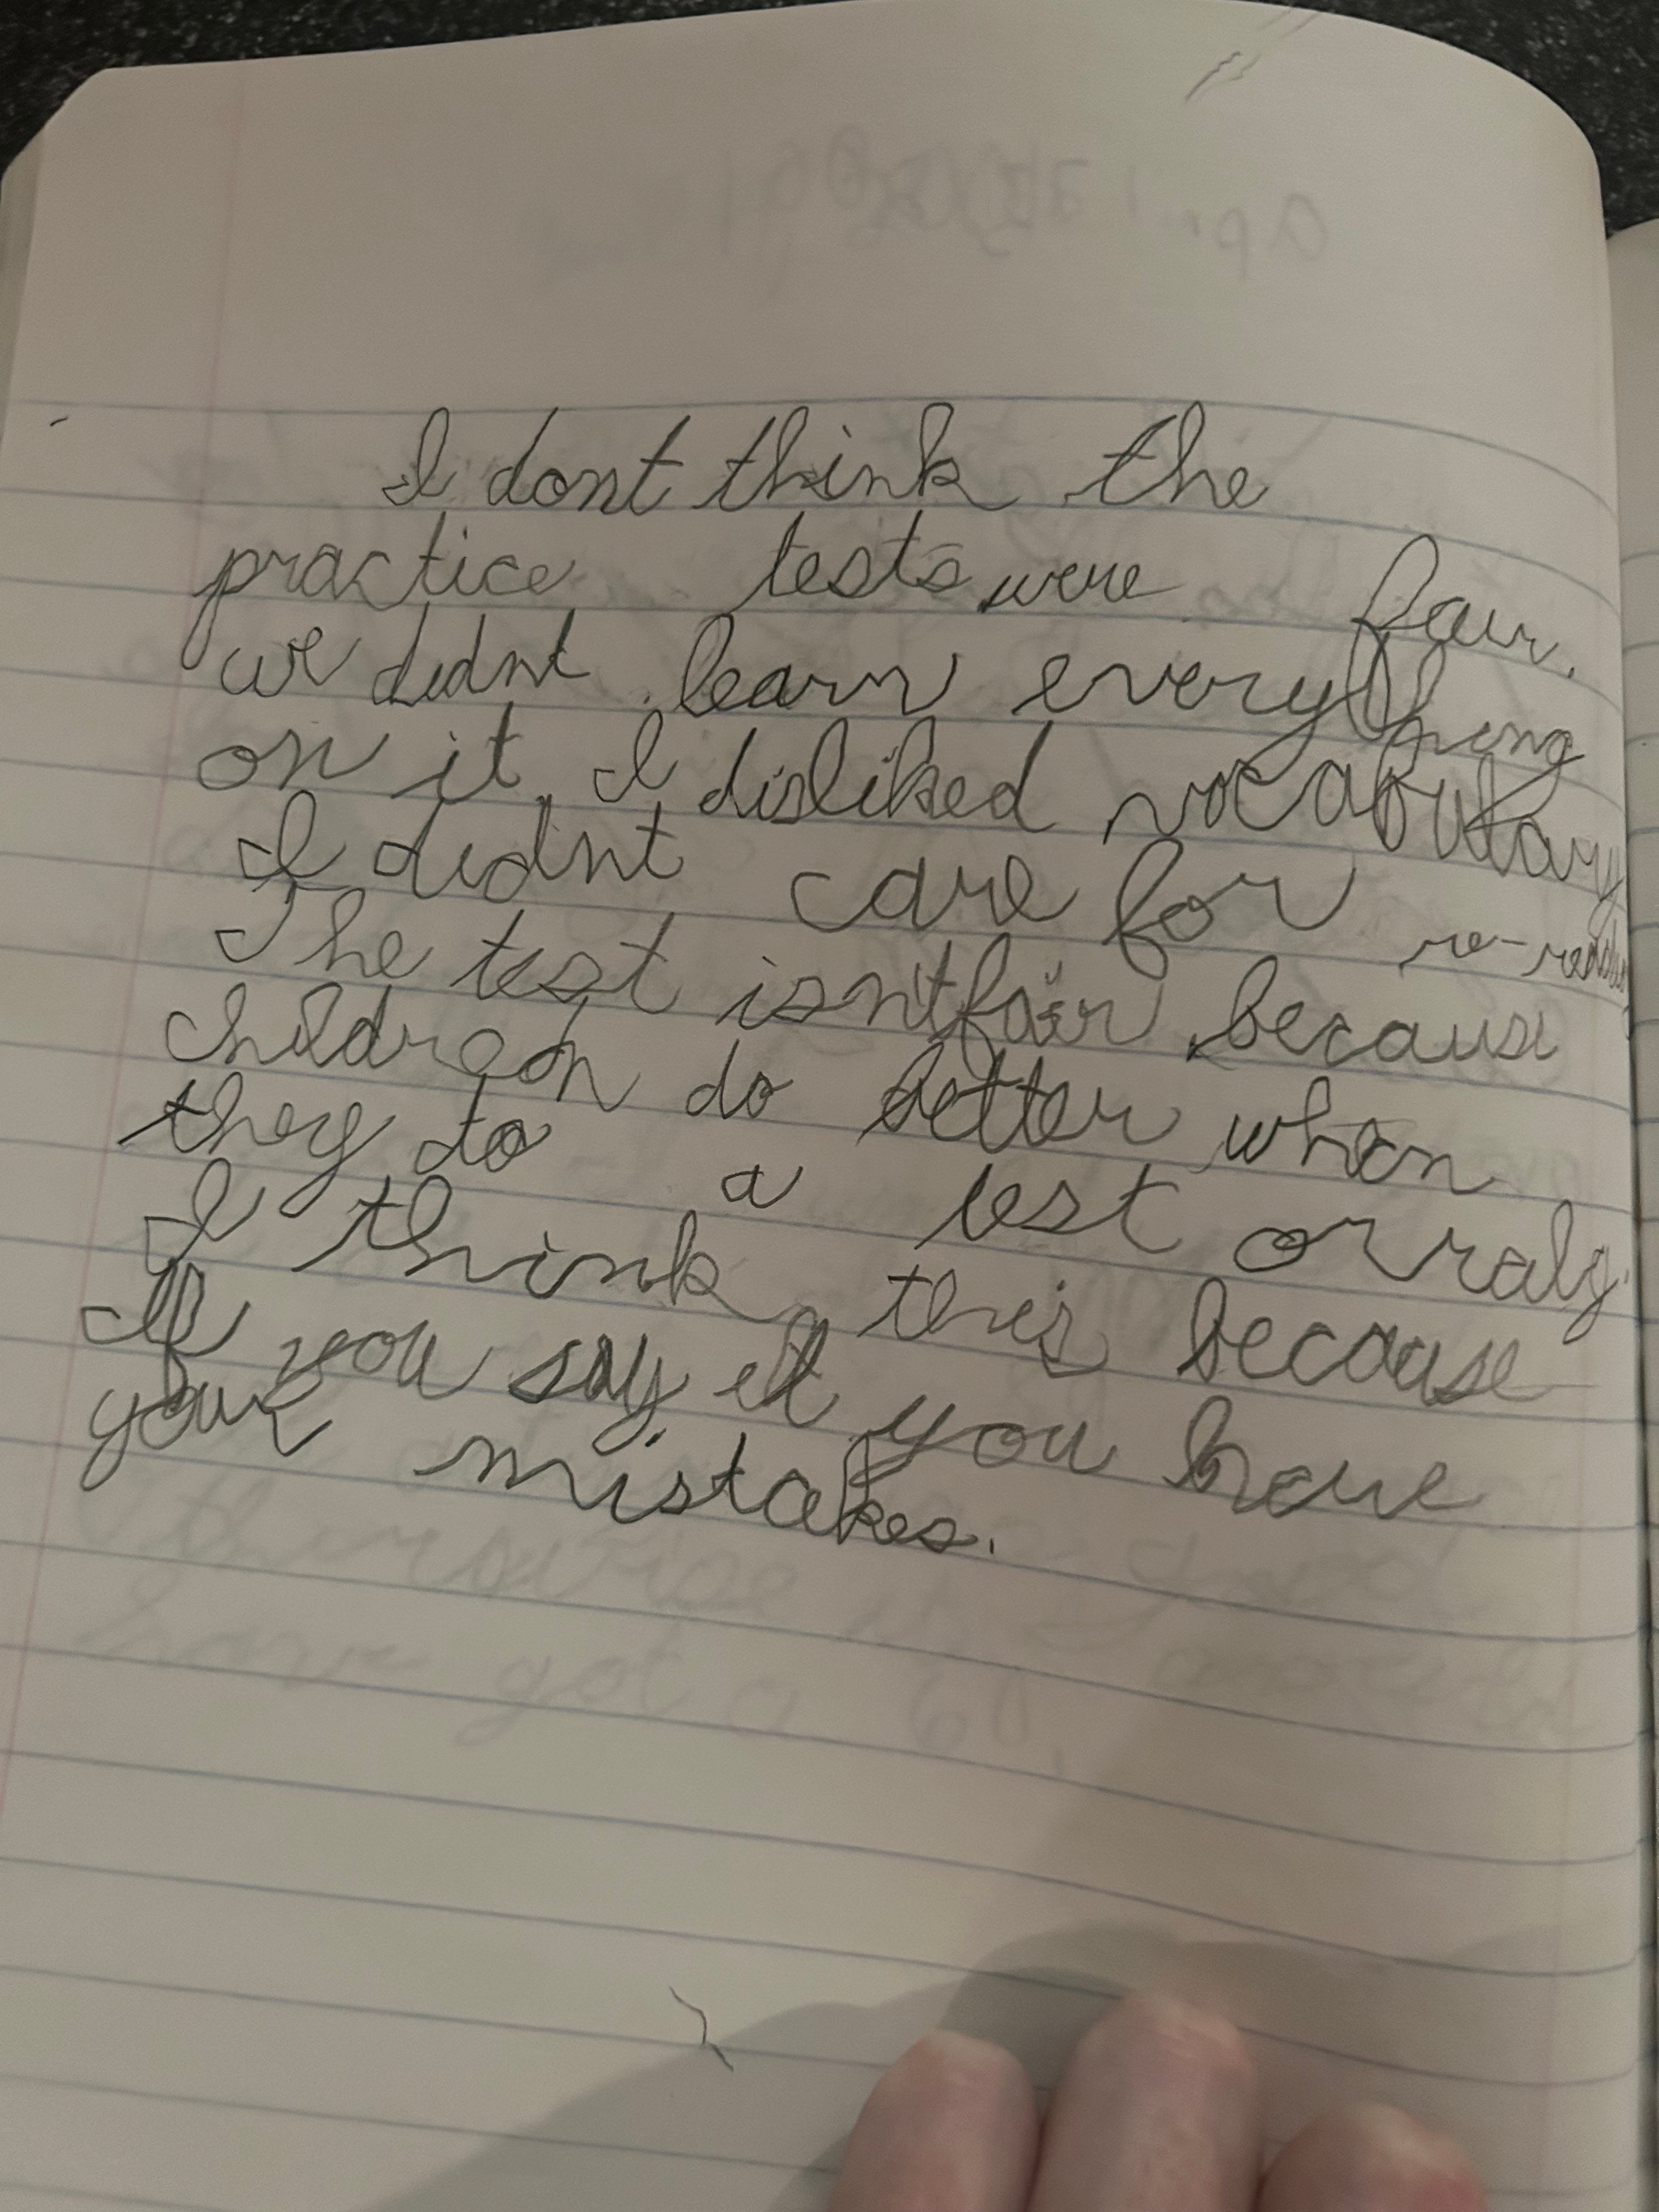 I dont think the
practice tests were fair.
we didnt learn everything
on it. I disliked vocabulary
I didnt care for re-reading
The test isnt fair because
children do better when
they do a test orraly.
I think this because
If you say it you have
your mistakes.